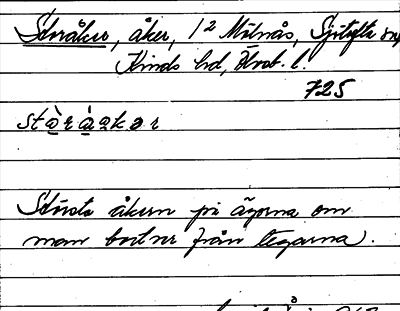 Storåker, åker, 1² Mölnås, Sjötofta sn,
Kinds hd, Älvsb. l.
725
Största åkern på ägorna om
man bortser från tegarna.